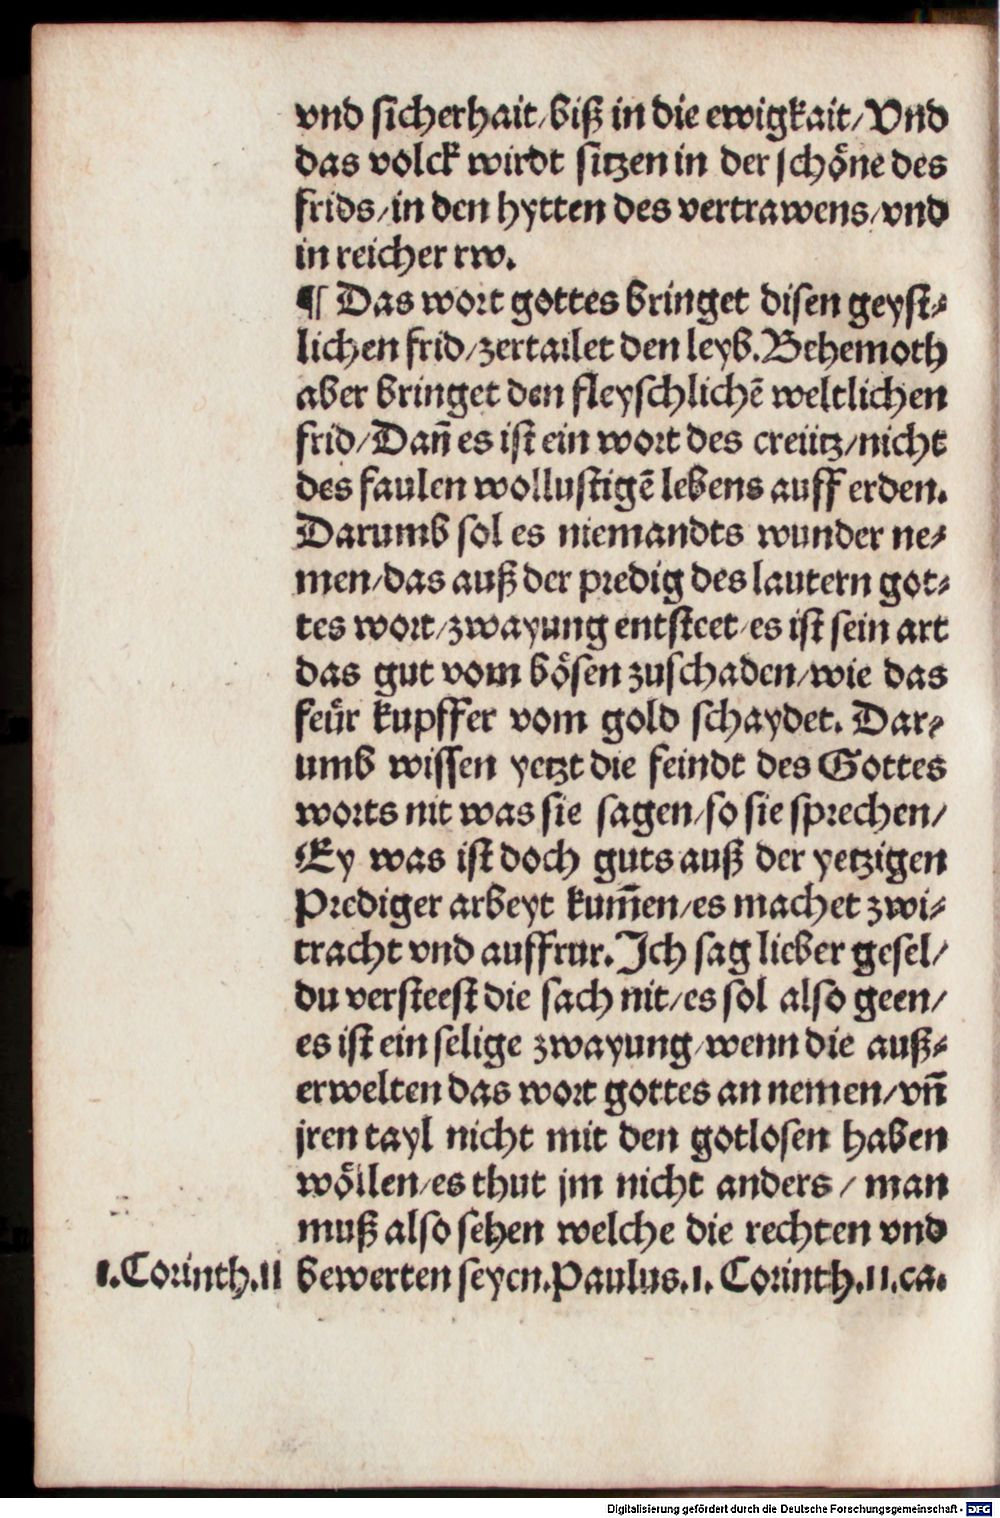 vnd sicherhait/biß in die ewigkait/Vnd
das volck wirdt sitzen in der schoͤne des
frids/in den hytten des vertrawens/vnd
in reicher rw.
¶ Das wort gottes bringet disen geyst⸗
lichen frid/zertailet den leyb.Behemoth
aber bringet den fleyschlichẽ weltlichen
frid/Dañ es ist ein wort des creütz/nicht
des faulen wollustigẽ lebens auff erden.
Darumb sol es niemandts wunder ne⸗
men/das auß der predig des lautern got⸗
tes wort/zwayung entsteet/es ist sein art
das gut vom boͤsen zuschaden/wie das
feuͤr kupffer vom gold schaydet. Dar⸗
umb wissen yetzt die feindt des Gottes
worts nit was sie sagen/so sie sprechen/
Ey was ist doch guts auß der yetzigen
Prediger arbeyt kum̃en/es machet zwi⸗
tracht vnd auffrur.Ich sag lieber gesel/
du versteest die sach nit/es sol also geen/
es ist ein selige zwayung/wenn die auß⸗
erwelten das wort gottes an nemen/vñ
jren tayl nicht mit den gotlosen haben
woͤllen/es thut jm nicht anders/man
muß also sehen welche die rechten vnd
1.Corinth.11 bewerten seyen.Paulus.1. Corinth.11.ca.
Digitalisierung gefördert durch die Deutsche Forschungsgemeinschaft - DFG